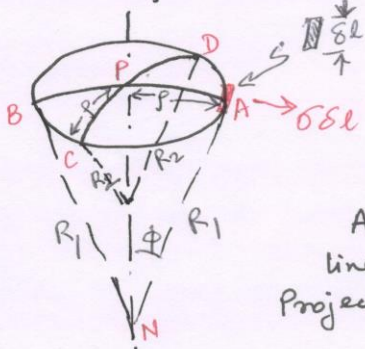 D
δl
P
S
B
ρ
ρ
A
σδl
C
R2
R2
R1
φ
R1
A
lin
Projec
N